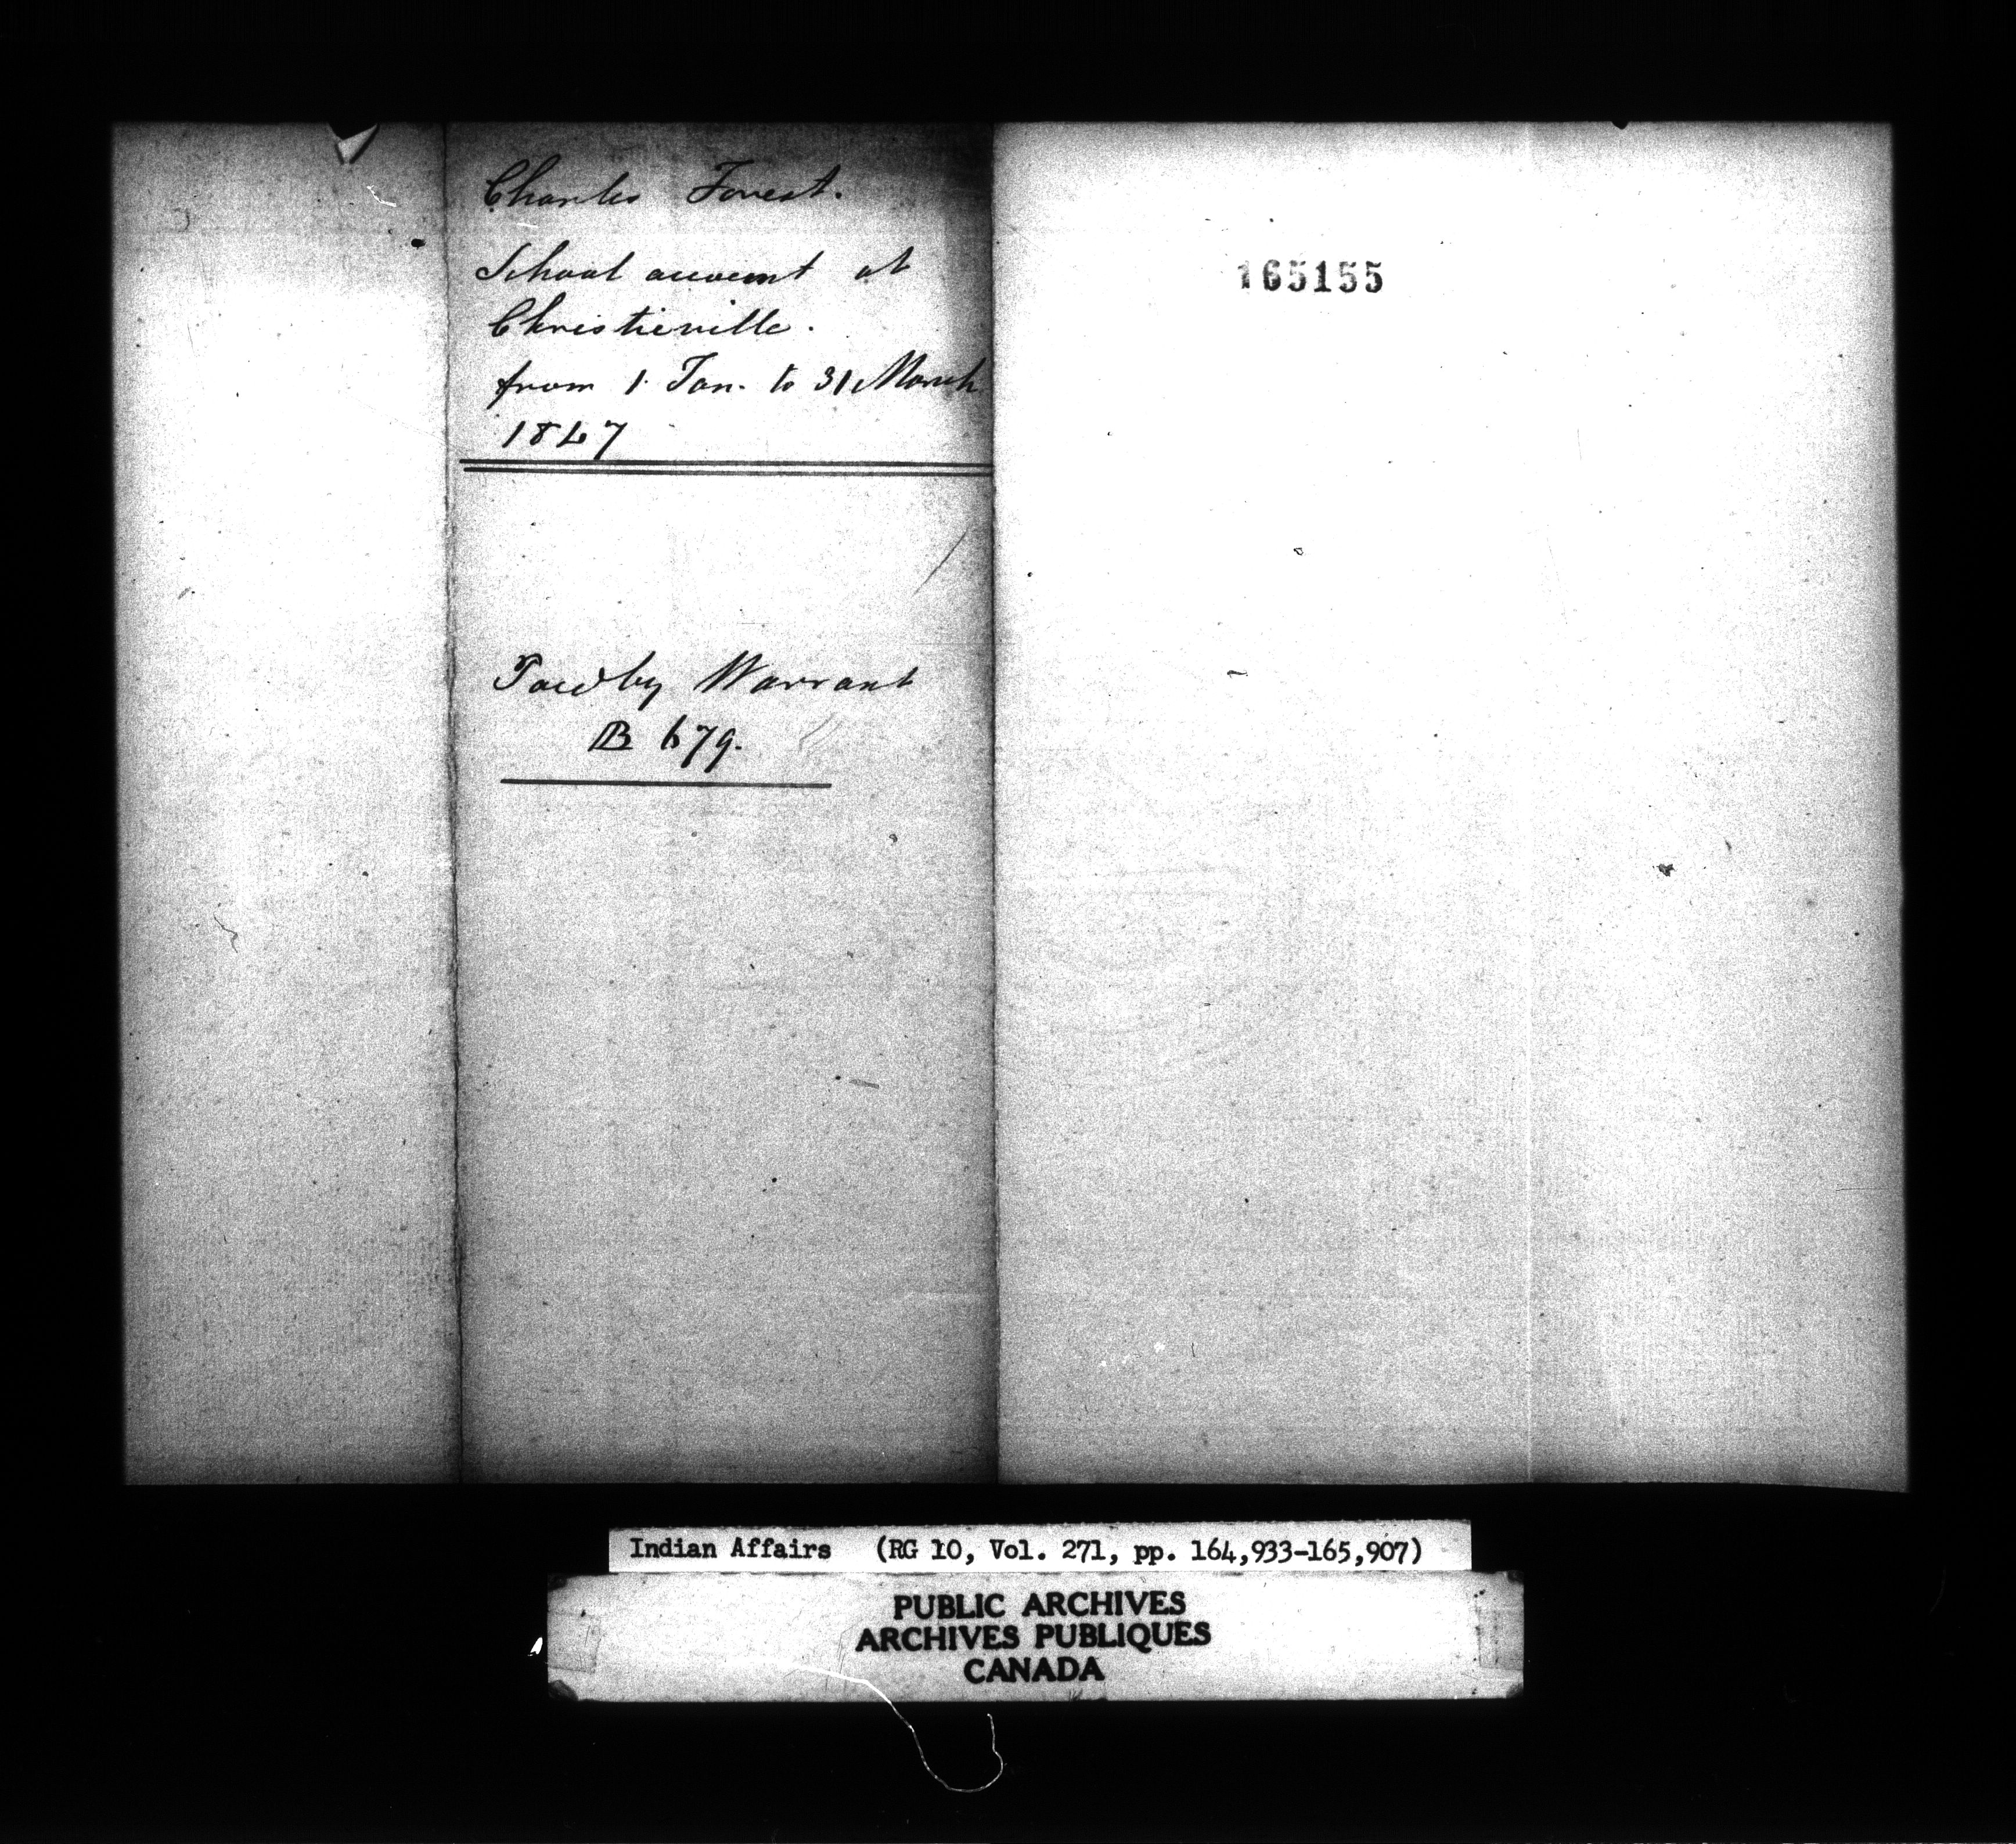 Charles Forest.
School account at
Christieville.
from 1 Jan. to 31 March
1847
Paid by Warrant
B 679.
165155
Indian Affairs (RG 10, Vol. 271, pp. 164,933-165,907)
PUBLIC ARCHIVES
ARCHIVES PUBLIQUES
CANADA